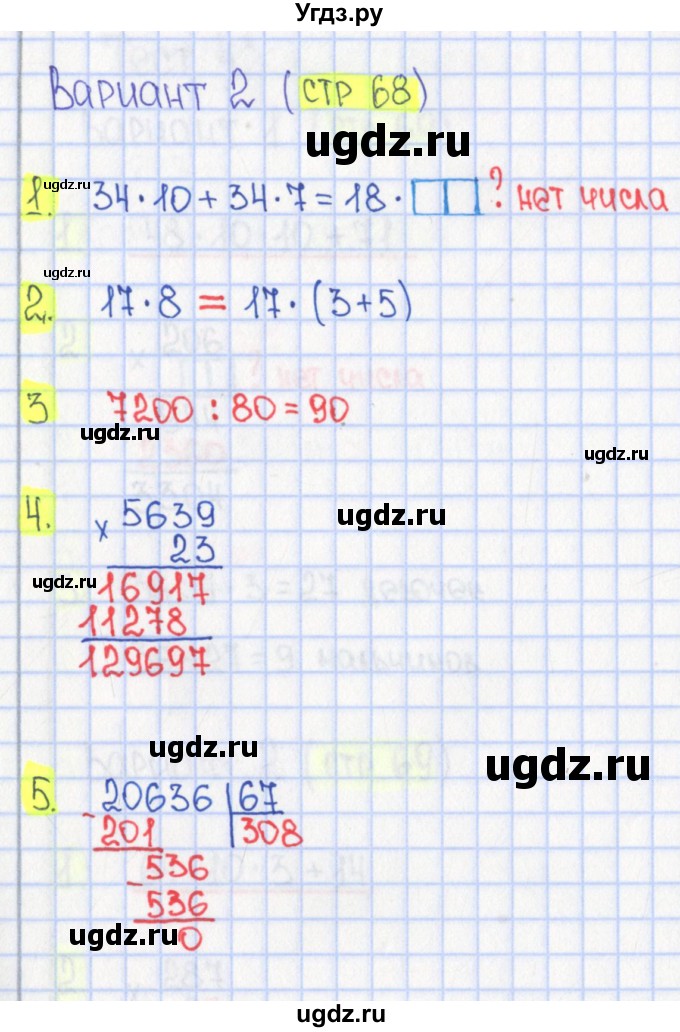 Угдз.ру
Вариант 2 (стр 68)
ugdz.ru
ugdz.ru
1. 34·10+34·7=18·□□? нет числа
ugdz.ru
2. 17·8 = 17·(3+5)
3 7200 : 80 = 90
ugdz.ru
ugdz.ru
4. × 5639
23
ugdz.ru
16917
11278
129697
ugdz.ru
ugdz.ru
5. 20636 | 67
- 201 308
- 536
536
ugdz.ru
0
ugdz.ru